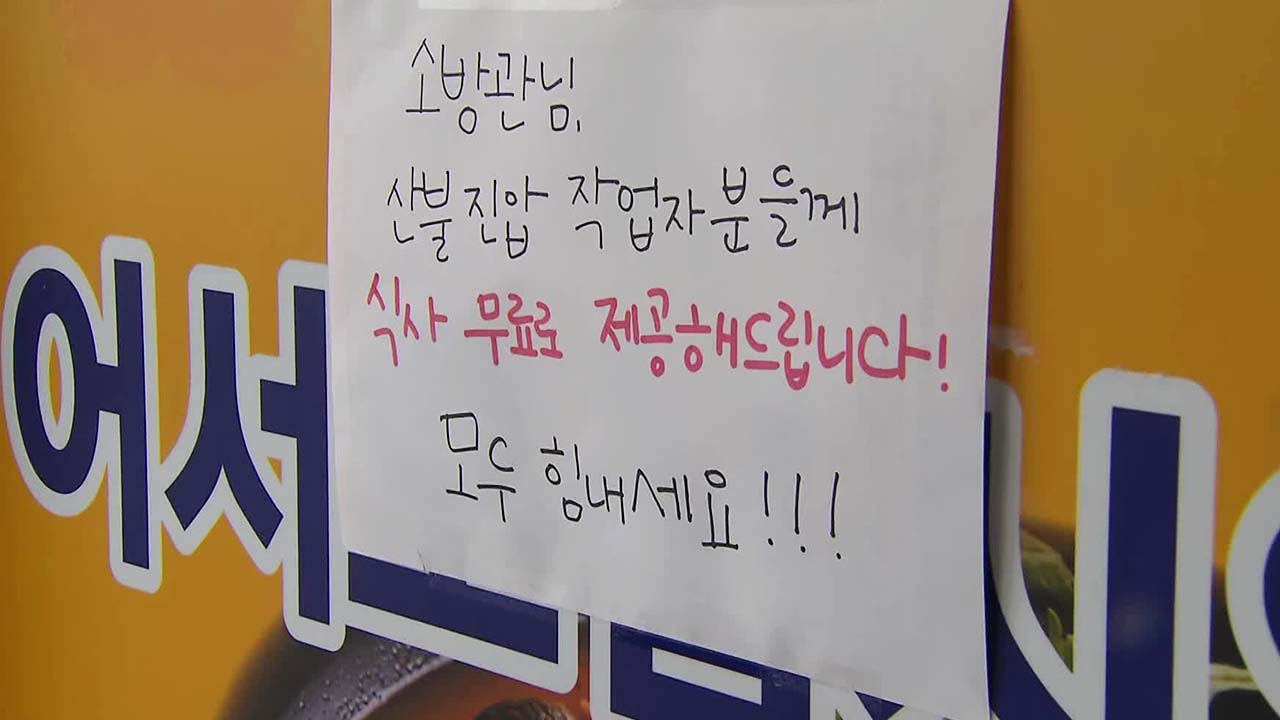 소방관님,
산불진압 작업자분들께
식사 무료로 제공해드립니다!
모두 힘내세요!!!
어서